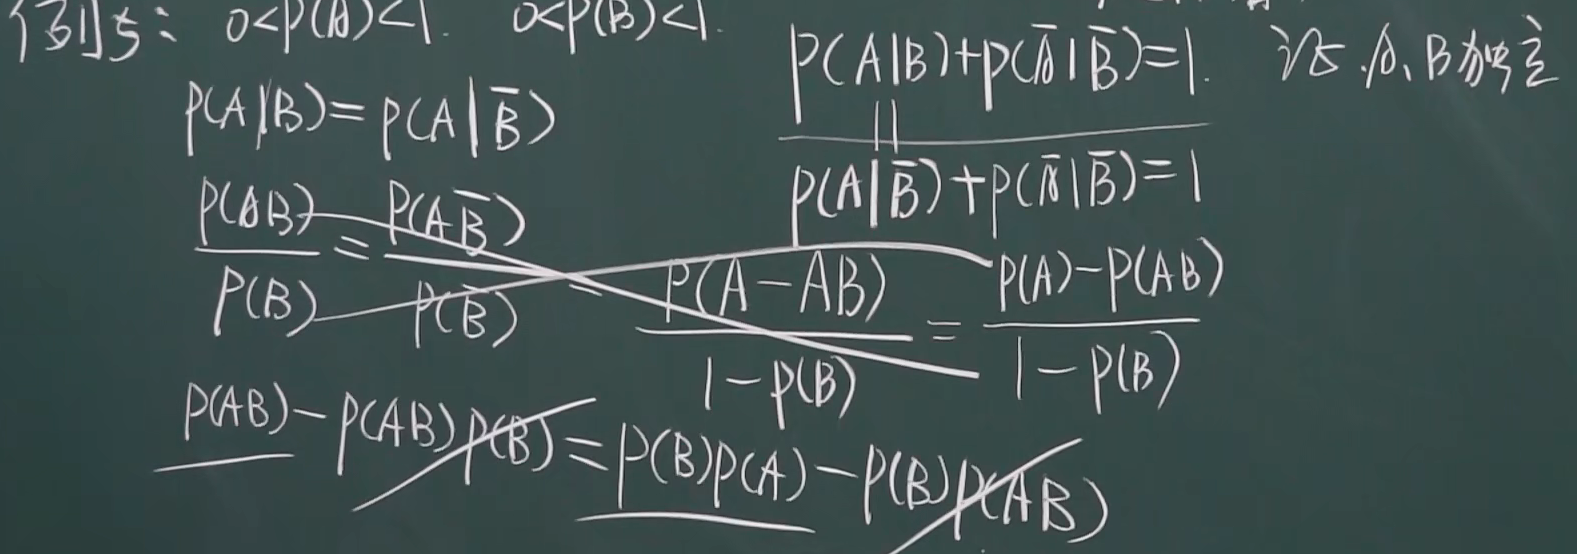 例5: 0<P(A)<1. 0<P(B)<1. P(A|B)+P(Ā|B̄)=1. 证 A、B独立
P(A|B)=P(A|B̄)
||
P(A|B̄)+P(Ā|B̄)=1
P(AB)/P(B) = P(AB̄)/P(B̄) = P(A-AB)/1-P(B) = P(A)-P(AB)/1-P(B)
P(AB)-P(AB)P(B)=P(B)P(A)-P(B)P(AB)